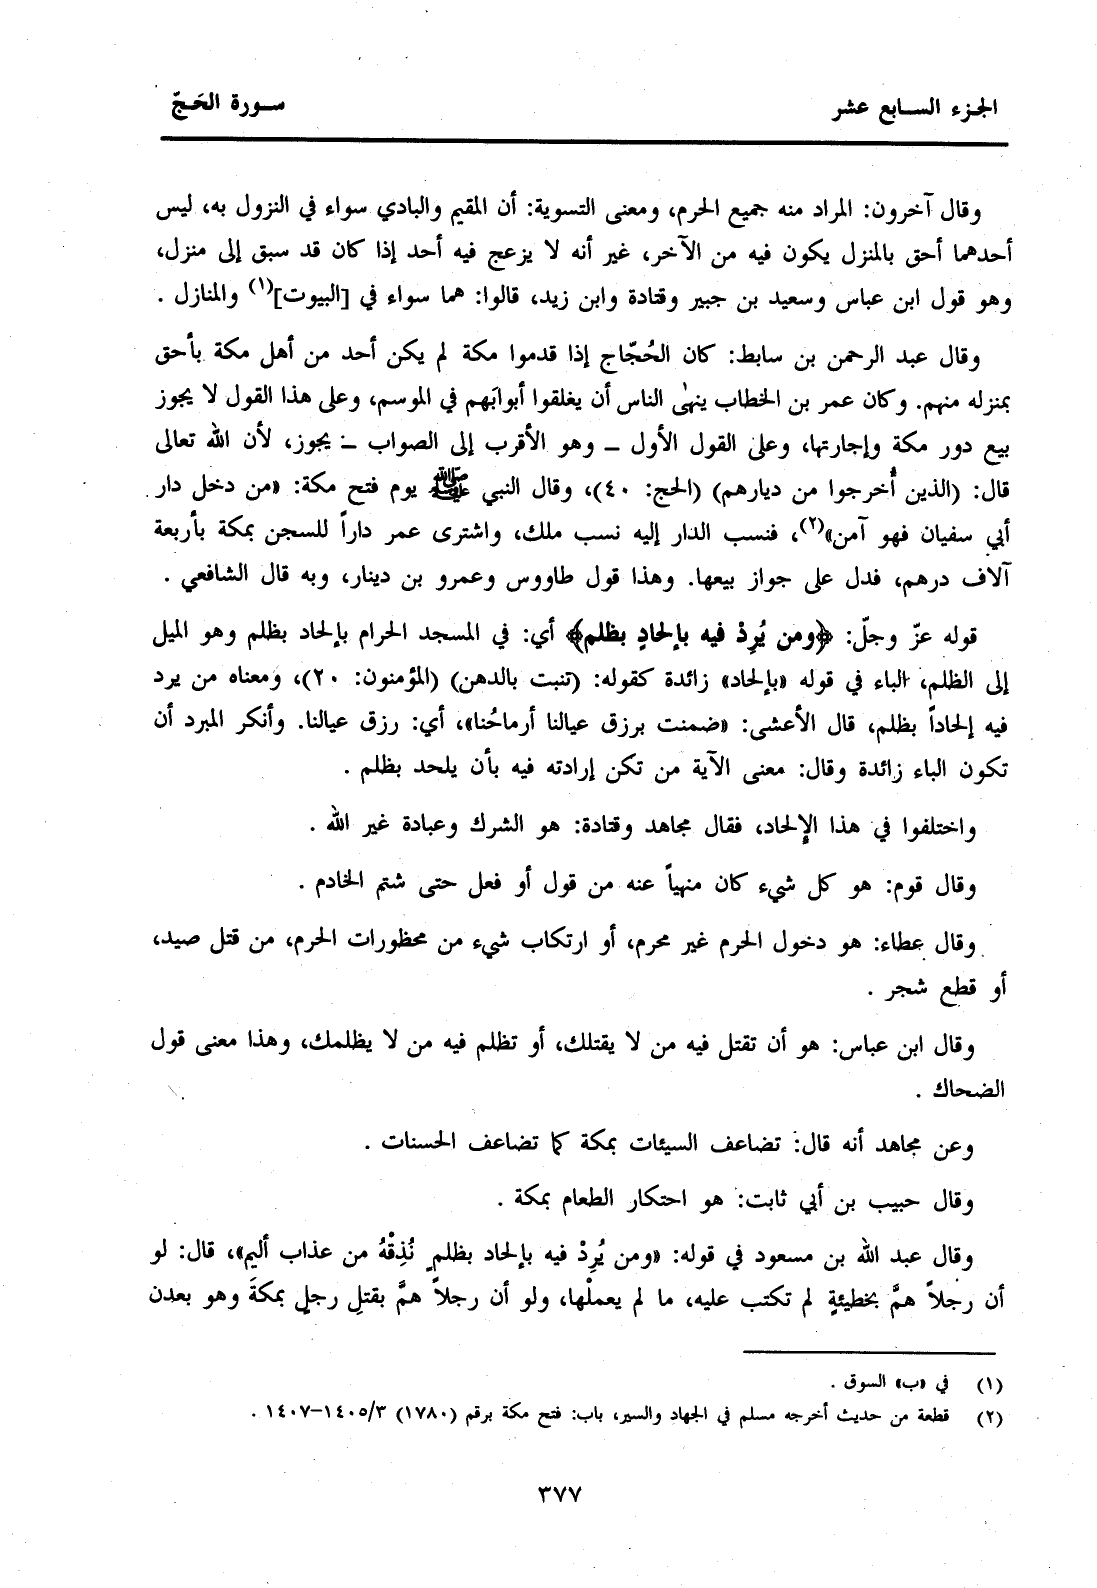 الجزء السابع عشر
سورة الحَجّ
وقال آخرون: المراد منه جميع الحرم، ومعنى التسوية: أن المقيم والبادي سواء في النزول به، ليس
أحدهما أحق بالمنزل يكون فيه من الآخر، غير أنه لا يزعج فيه أحد إذا كان قد سبق إلى منزل،
وهو قول ابن عباس وسعيد بن جبير وقتادة وابن زيد، قالوا: هما سواء في [البيوت](١) والمنازل .
وقال عبد الرحمن بن سابط: كان الحُجّاج إذا قدموا مكة لم يكن أحد من أهل مكة بأحق
بمنزله منهم. وكان عمر بن الخطاب ينهىٰ الناس أن يغلقوا أبوابَهم في الموسم، وعلى هذا القول لا يجوز
بيع دور مكة وإجارتها، وعلى القول الأول ــ وهو الأقرب إلى الصواب ــ يجوز، لأن الله تعالى
قال: (الذين أُخرجوا من ديارهم) (الحج: ٤٠)، وقال النبي ﷺ يوم فتح مكة: «من دخل دار
أبي سفيان فهو آمن»(٢)، فنسب الدار إليه نسب ملك، واشترى عمر داراً للسجن بمكة بأربعة
آلاف درهم، فدل على جواز بيعها. وهذا قول طاووس وعمرو بن دينار، وبه قال الشافعي .
قوله عزّ وجلّ: ﴿ومن يُرِدْ فيه بإلحادٍ بظلم﴾ أي: في المسجد الحرام بإلحاد بظلم وهو الميل
إلى الظلم، الباء في قوله «بإلحاد» زائدة كقوله: (تنبت بالدهن) (المؤمنون: ٢٠)، ومعناه من يرد
فيه إلحاداً بظلم، قال الأعشى: «ضمنت برزق عيالنا أرماحُنا»، أي: رزق عيالنا. وأنكر المبرد أن
تكون الباء زائدة وقال: معنى الآية من تكن إرادته فيه بأن يلحد بظلم .
واختلفوا في هذا الإلحاد، فقال مجاهد وقتادة: هو الشرك وعبادة غير الله .
وقال قوم: هو كل شيء كان منهياً عنه من قول أو فعل حتى شتم الخادم .
وقال عطاء: هو دخول الحرم غير محرم، أو ارتكاب شيء من محظورات الحرم، من قتل صيد،
أو قطع شجر .
وقال ابن عباس: هو أن تقتل فيه من لا يقتلك، أو تظلم فيه من لا يظلمك، وهذا معنى قول
الضحاك .
وعن مجاهد أنه قال: تضاعف السيئات بمكة كما تضاعف الحسنات .
وقال حبيب بن أبي ثابت: هو احتكار الطعام بمكة .
وقال عبد الله بن مسعود في قوله: «ومن يُرِدْ فيه بإلحاد بظلمٍ نُذِقْهُ من عذاب أليم»، قال: لو
أن رجلاً همَّ بخطيئةٍ لم تكتب عليه، ما لم يعملْها، ولو أن رجلاً همَّ بقتلِ رجلٍ بمكةَ وهو بعدن
(١) في «ب» السوق .
(٢) قطعة من حديث أخرجه مسلم في الجهاد والسير، باب: فتح مكة برقم (١٧٨٠) ١٤٠٥/٣–١٤٠٧ .
٣٧٧